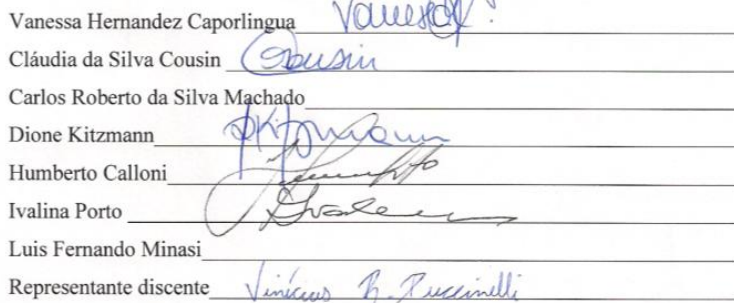 Vanessa Hernandez Caporlingua
Cláudia da Silva Cousin Cousin
Carlos Roberto da Silva Machado
Dione Kitzmann DKitzmann
Humberto Calloni
Ivalina Porto
Luis Fernando Minasi
Representante discente Vinícius R. Puccinelli